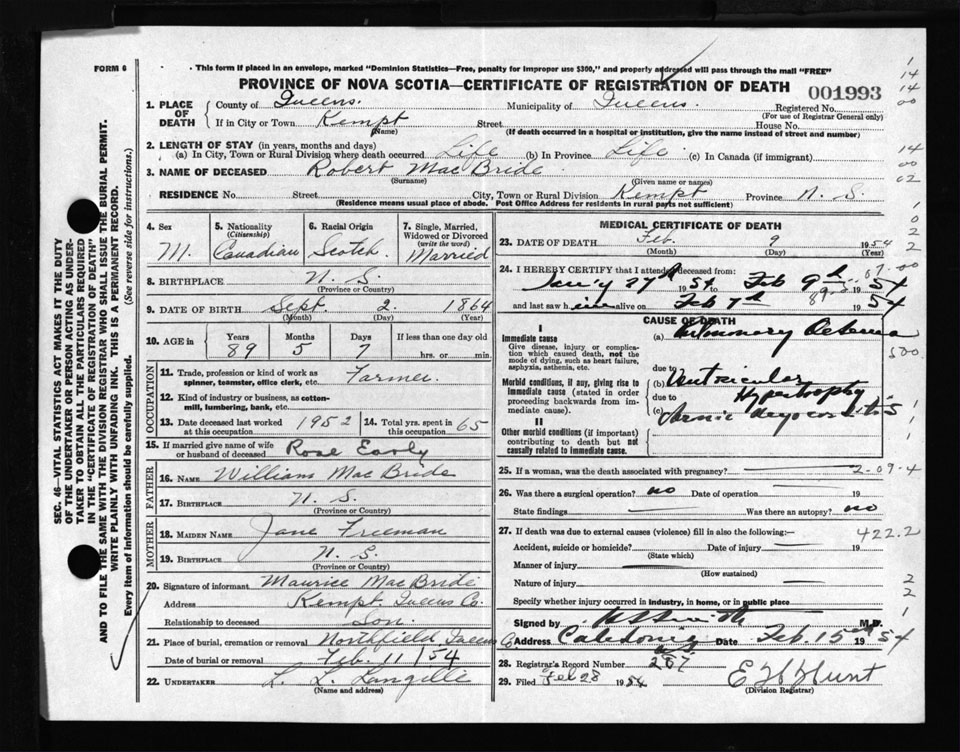 FORM 6
This form if placed in an envelope, marked "Dominion Statistics—Free, penalty for improper use $300," and properly addressed will pass through the mail "FREE"
PROVINCE OF NOVA SCOTIA—CERTIFICATE OF REGISTRATION OF DEATH
001993
1. PLACE OF DEATH
County of Queens. Municipality of Queens. Registered No.
(For use of Registrar General only)
If in City or Town Kempt Street House No.
(Name) (If death occurred in a hospital or institution, give the name instead of street and number)
2. LENGTH OF STAY (in years, months and days)
(a) In City, Town or Rural Division where death occurred Life (b) In Province Life (c) In Canada (if immigrant)
3. NAME OF DECEASED Robert MacBride
(Surname) (Given name or names)
RESIDENCE No. Street City, Town or Rural Division Kempt Province N. S.
(Residence means usual place of abode. Post Office Address for residents in rural parts not sufficient)
4. Sex M.
5. Nationality (Citizenship) Canadian
6. Racial Origin Scotch
7. Single, Married, Widowed or Divorced (write the word) Married
8. BIRTHPLACE N. S.
(Province or Country)
9. DATE OF BIRTH Sept. 2. 1864
(Month) (Day) (Year)
10. AGE in Years Months Days If less than one day
89 5 7 hrs. or min.
OCCUPATION
11. Trade, profession or kind of work as spinner, teamster, office clerk, etc. Farmer.
12. Kind of industry or business, as cotton-mill, lumbering, bank, etc.
13. Date deceased last worked at this occupation 1952
14. Total yrs. spent in this occupation 65
15. If married give name of wife or husband of deceased Rose Early
FATHER
16. NAME William MacBride
17. BIRTHPLACE N. S.
(Province or Country)
MOTHER
18. MAIDEN NAME Jane Freeman
19. BIRTHPLACE N. S.
(Province or Country)
20. Signature of informant Maurice MacBride
Address Kempt. Queens Co.
Relationship to deceased Son.
21. Place of burial, cremation or removal Northfield Queens Co
Date of burial or removal Feb. 11/54
22. UNDERTAKER L. L. Langille
(Name and address)
MEDICAL CERTIFICATE OF DEATH
23. DATE OF DEATH Feb. 9 1954
(Month) (Day) (Year)
24. I HEREBY CERTIFY that I attended deceased from:
27th 1954 to Feb 9th 1954
and last saw him alive on Feb 7th 1954
CAUSE OF DEATH
I
Immediate cause
Give disease, injury or complication which caused death, not the mode of dying, such as heart failure, asphyxia, asthenia, etc.
(a) Pulmonary Oedema
due to
Morbid conditions, if any, giving rise to immediate cause (stated in order proceeding backwards from immediate cause)
(b) Ventricular Hypertrophy
due to
(c) Chronic Myocarditis
II
Other morbid conditions (if important) contributing to death but not causally related to immediate cause.
25. If a woman, was the death associated with pregnancy?
26. Was there a surgical operation? no Date of operation 19
State findings Was there an autopsy? no
27. If death was due to external causes (violence) fill in also the following:—
422.2
Accident, suicide or homicide? Date of injury 19
(State which)
Manner of injury
(How sustained)
Nature of injury
Specify whether injury occurred in industry, in home, or in public place
Signed by M.D.
Address Caledonia Date Feb. 15th 1954
28. Registrar's Record Number 287
29. Filed Feb 28 1954 E H Hunt
(Division Registrar)
SEC. 46—VITAL STATISTICS ACT MAKES IT THE DUTY
OF THE UNDERTAKER OR PERSON ACTING AS UNDERTAKER TO OBTAIN ALL THE PARTICULARS REQUIRED
IN THE "CERTIFICATE OF REGISTRATION OF DEATH"
AND TO FILE THE SAME WITH THE DIVISION REGISTRAR WHO SHALL ISSUE THE BURIAL PERMIT.
WRITE PLAINLY WITH UNFADING INK. THIS IS A PERMANENT RECORD.
Every item of information should be carefully supplied. (See reverse side for instructions.)